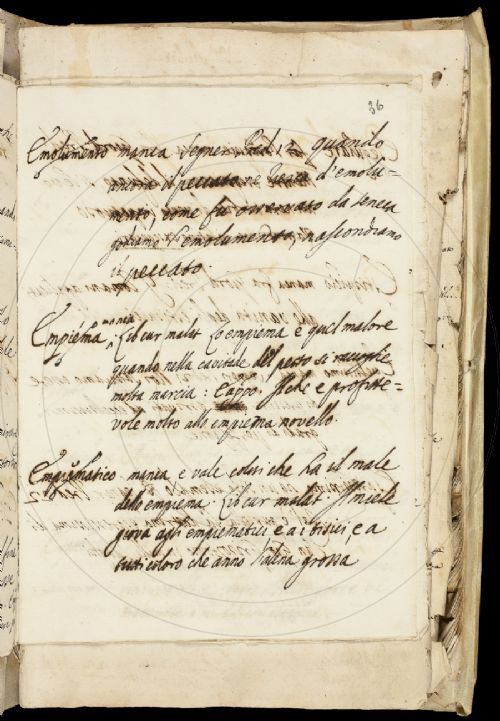 36
Emolumento manca Segner. Pred. 2. quando
ancora il peccato ne d'emolu-
mento, come fu osservato da seneca
godiamo l'emolumento, nascondiamo
il peccato.
Empiema manca Lib cur malat Lo empiema è quel malore
quando nella cavitade del petto si raccoglie
molta marcia: e appo. che è profite-
vole molto allo empiema novello.
Empiematico manca, e vale colui che ha il male
dello empiema. Lib cur malat
giova agli empiematici e a i tisici, e a
tutti coloro che anno l'alena grossa